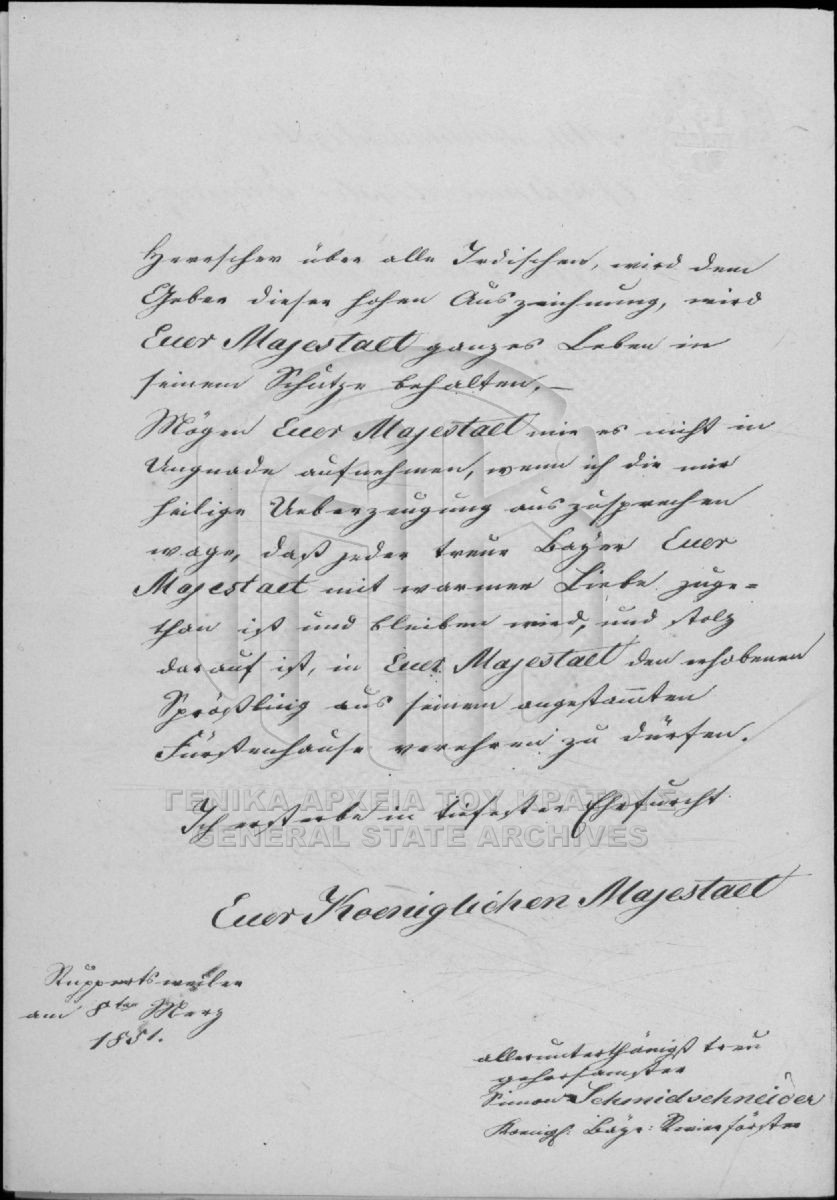 Herrscher über alle Irdischen, wird dem
Geber dieser hohen Auszeichnung, wird
Euer Majestaet ganzes Leben in
seinem Schutze behalten. –
Mögen Euer Majestaet mir es nicht in
Ungnade aufnehmen, wenn ich die mir
heilige Ueberzeugung auszusprechen
wage, daß jeder treue Bayer Euer
Majestaet mit warmer Liebe zuge=
than ist und bleiben wird, und stolz
darauf ist, in Euer Majestaet den erhobenen
Sprößling aus seinem angestam̄ten
Fürstenhause verehren zu dürfen.
ΓΕΝΙΚΑ ΑΡΧΕΙΑ ΤΟΥ ΚΡΑΤΟΥΣ
Ich ersterbe in tiefester Ehrfurcht
GENERAL STATE ARCHIVES
Euer Koeniglichen Majestaet
Ruppertsweiler
am 8ten Merz
1851.
allerunterthänigst treu
gehorsamster
Simon Schmidschneider
Koenigl: Bayr: Revierförster